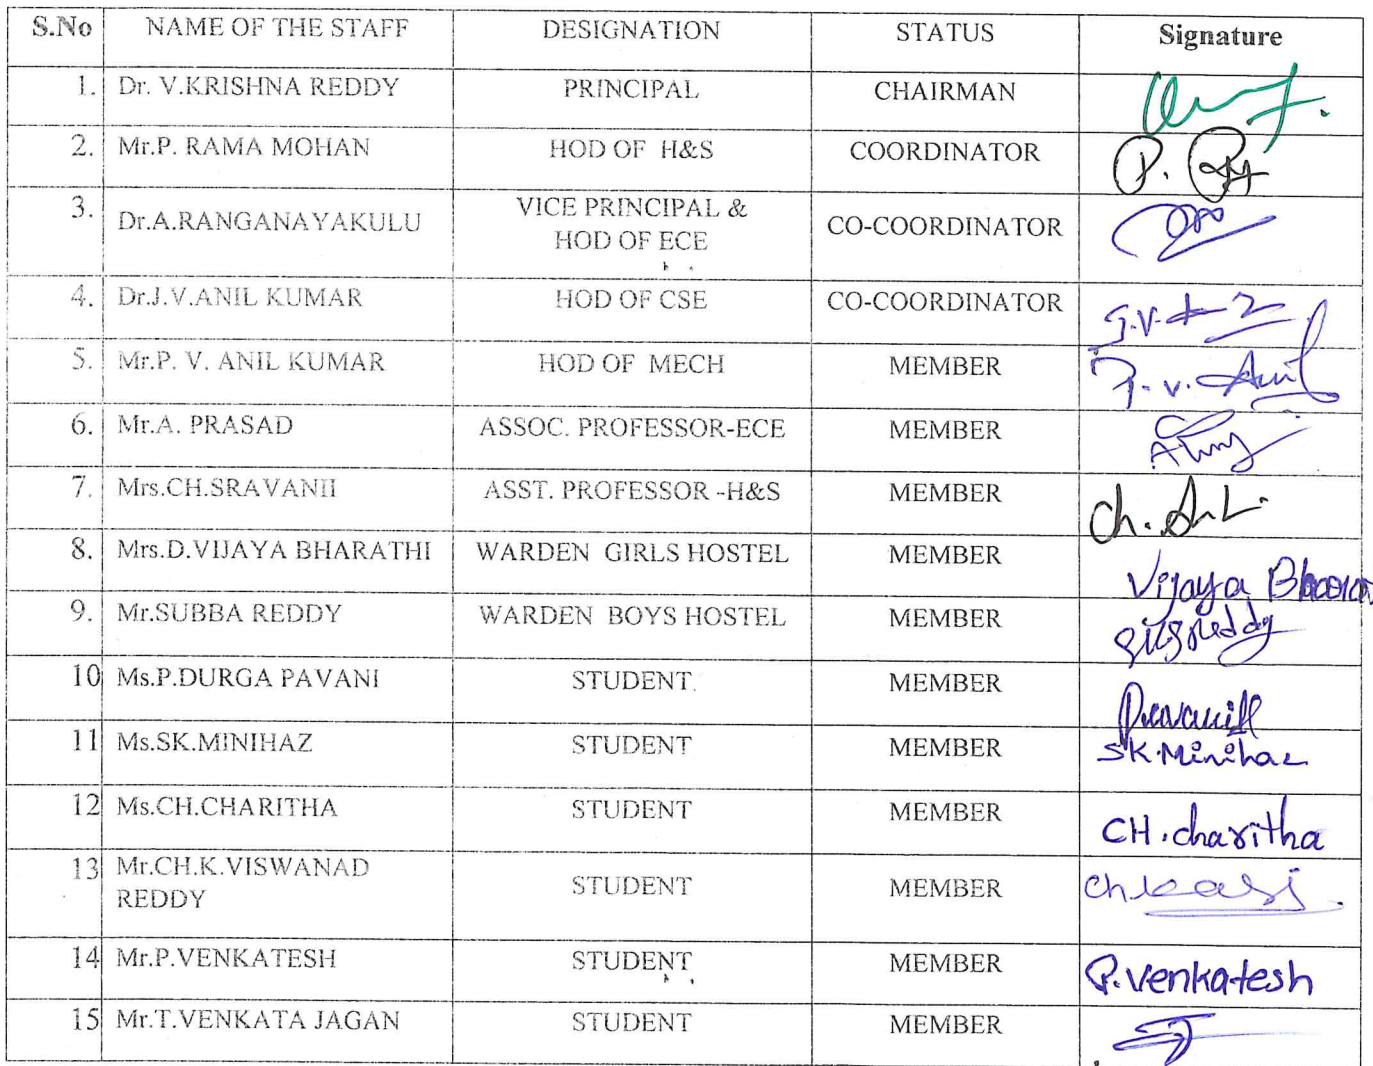 S.No NAME OF THE STAFF DESIGNATION STATUS Signature
1. Dr. V.KRISHNA REDDY PRINCIPAL CHAIRMAN
2. Mr.P. RAMA MOHAN HOD OF H&S COORDINATOR P.
3. Dr.A.RANGANAYAKULU VICE PRINCIPAL & CO-COORDINATOR
HOD OF ECE
4. Dr.J.V.ANIL KUMAR HOD OF CSE CO-COORDINATOR
5. Mr.P. V. ANIL KUMAR HOD OF MECH MEMBER P. V. Anil
6. Mr.A. PRASAD ASSOC. PROFESSOR-ECE MEMBER
7. Mrs.CH.SRAVANII ASST. PROFESSOR -H&S MEMBER Ch.
8. Mrs.D.VIJAYA BHARATHI WARDEN GIRLS HOSTEL MEMBER Vijaya
9. Mr.SUBBA REDDY WARDEN BOYS HOSTEL MEMBER
10 Ms.P.DURGA PAVANI STUDENT MEMBER
11 Ms.SK.MINIHAZ STUDENT MEMBER SK.Minihaz
12 Ms.CH.CHARITHA STUDENT MEMBER CH.charitha
13 Mr.CH.K.VISWANAD STUDENT MEMBER
REDDY
14 Mr.P.VENKATESH STUDENT MEMBER P.venkatesh
15 Mr.T.VENKATA JAGAN STUDENT MEMBER